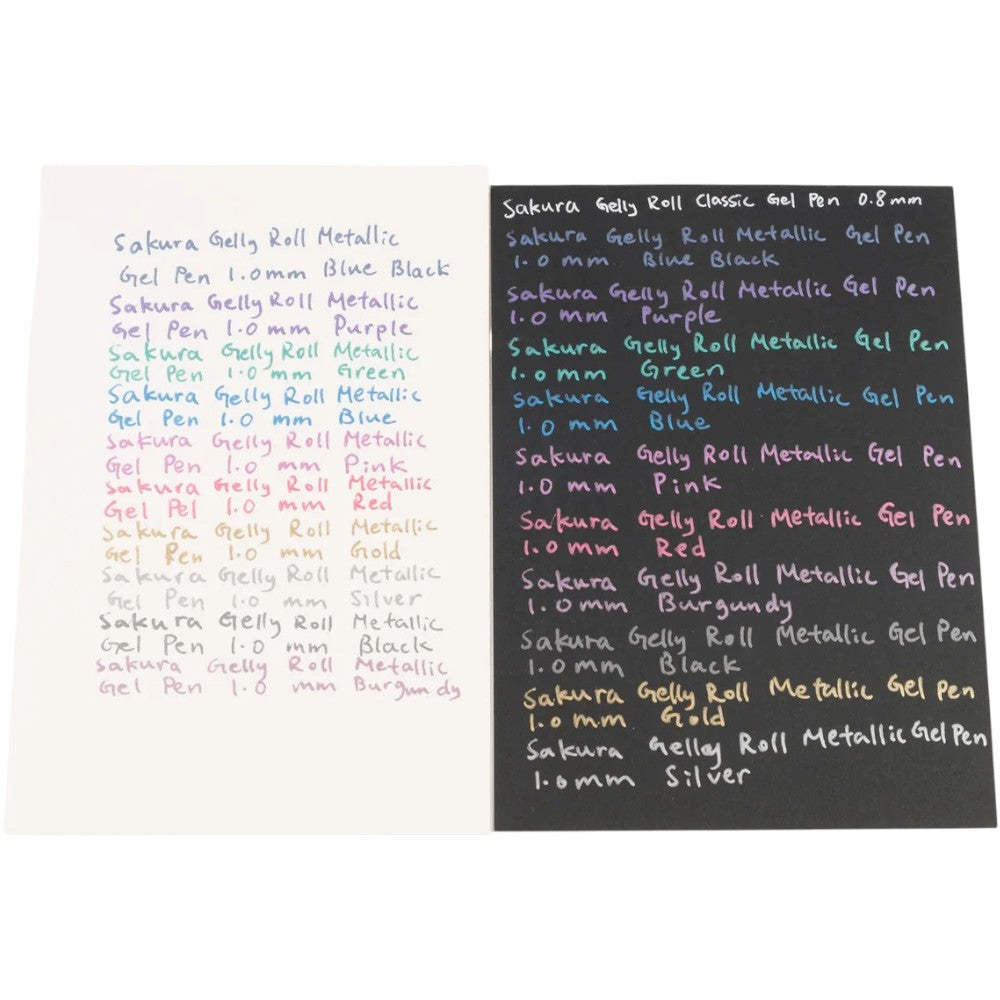 Sakura Gelly Roll Metallic
Gel Pen 1.0mm Blue Black
Sakura Gelly Roll Metallic
Gel Pen 1.0 mm Purple
Sakura Gelly Roll Metallic
Gel Pen 1.0 mm Green
Sakura Gelly Roll Metallic
Gel Pen 1.0 mm Blue
Sakura Gelly Roll Metallic
Gel Pen 1.0 mm Pink
Sakura Gelly Roll Metallic
Gel Pel 1.0 mm Red
Sakura Gelly Roll Metallic
Gel Pen 1.0 mm Gold
Sakura Gelly Roll Metallic
Gel Pen 1.0 mm Silver
Sakura Gelly Roll Metallic
Gel Pen 1.0 mm Black
Sakura Gelly Roll Metallic
Gel Pen 1.0 mm Burgundy
Sakura Gelly Roll Classic Gel Pen 0.8mm
Sakura Gelly Roll Metallic Gel Pen
1.0 mm Blue Black
Sakura Gelly Roll Metallic Gel Pen
1.0 mm Purple
Sakura Gelly Roll Metallic Gel Pen
1.0 mm Green
Sakura Gelly Roll Metallic Gel Pen
1.0 mm Blue
Sakura Gelly Roll Metallic Gel Pen
1.0 mm Pink
Sakura Gelly Roll Metallic Gel Pen
1.0 mm Red
Sakura Gelly Roll Metallic Gel Pen
1.0 mm Burgundy
Sakura Gelly Roll Metallic Gel Pen
1.0 mm Black
Sakura Gelly Roll Metallic Gel Pen
1.0 mm Gold
Sakura Gelly Roll Metallic Gel Pen
1.0mm Silver